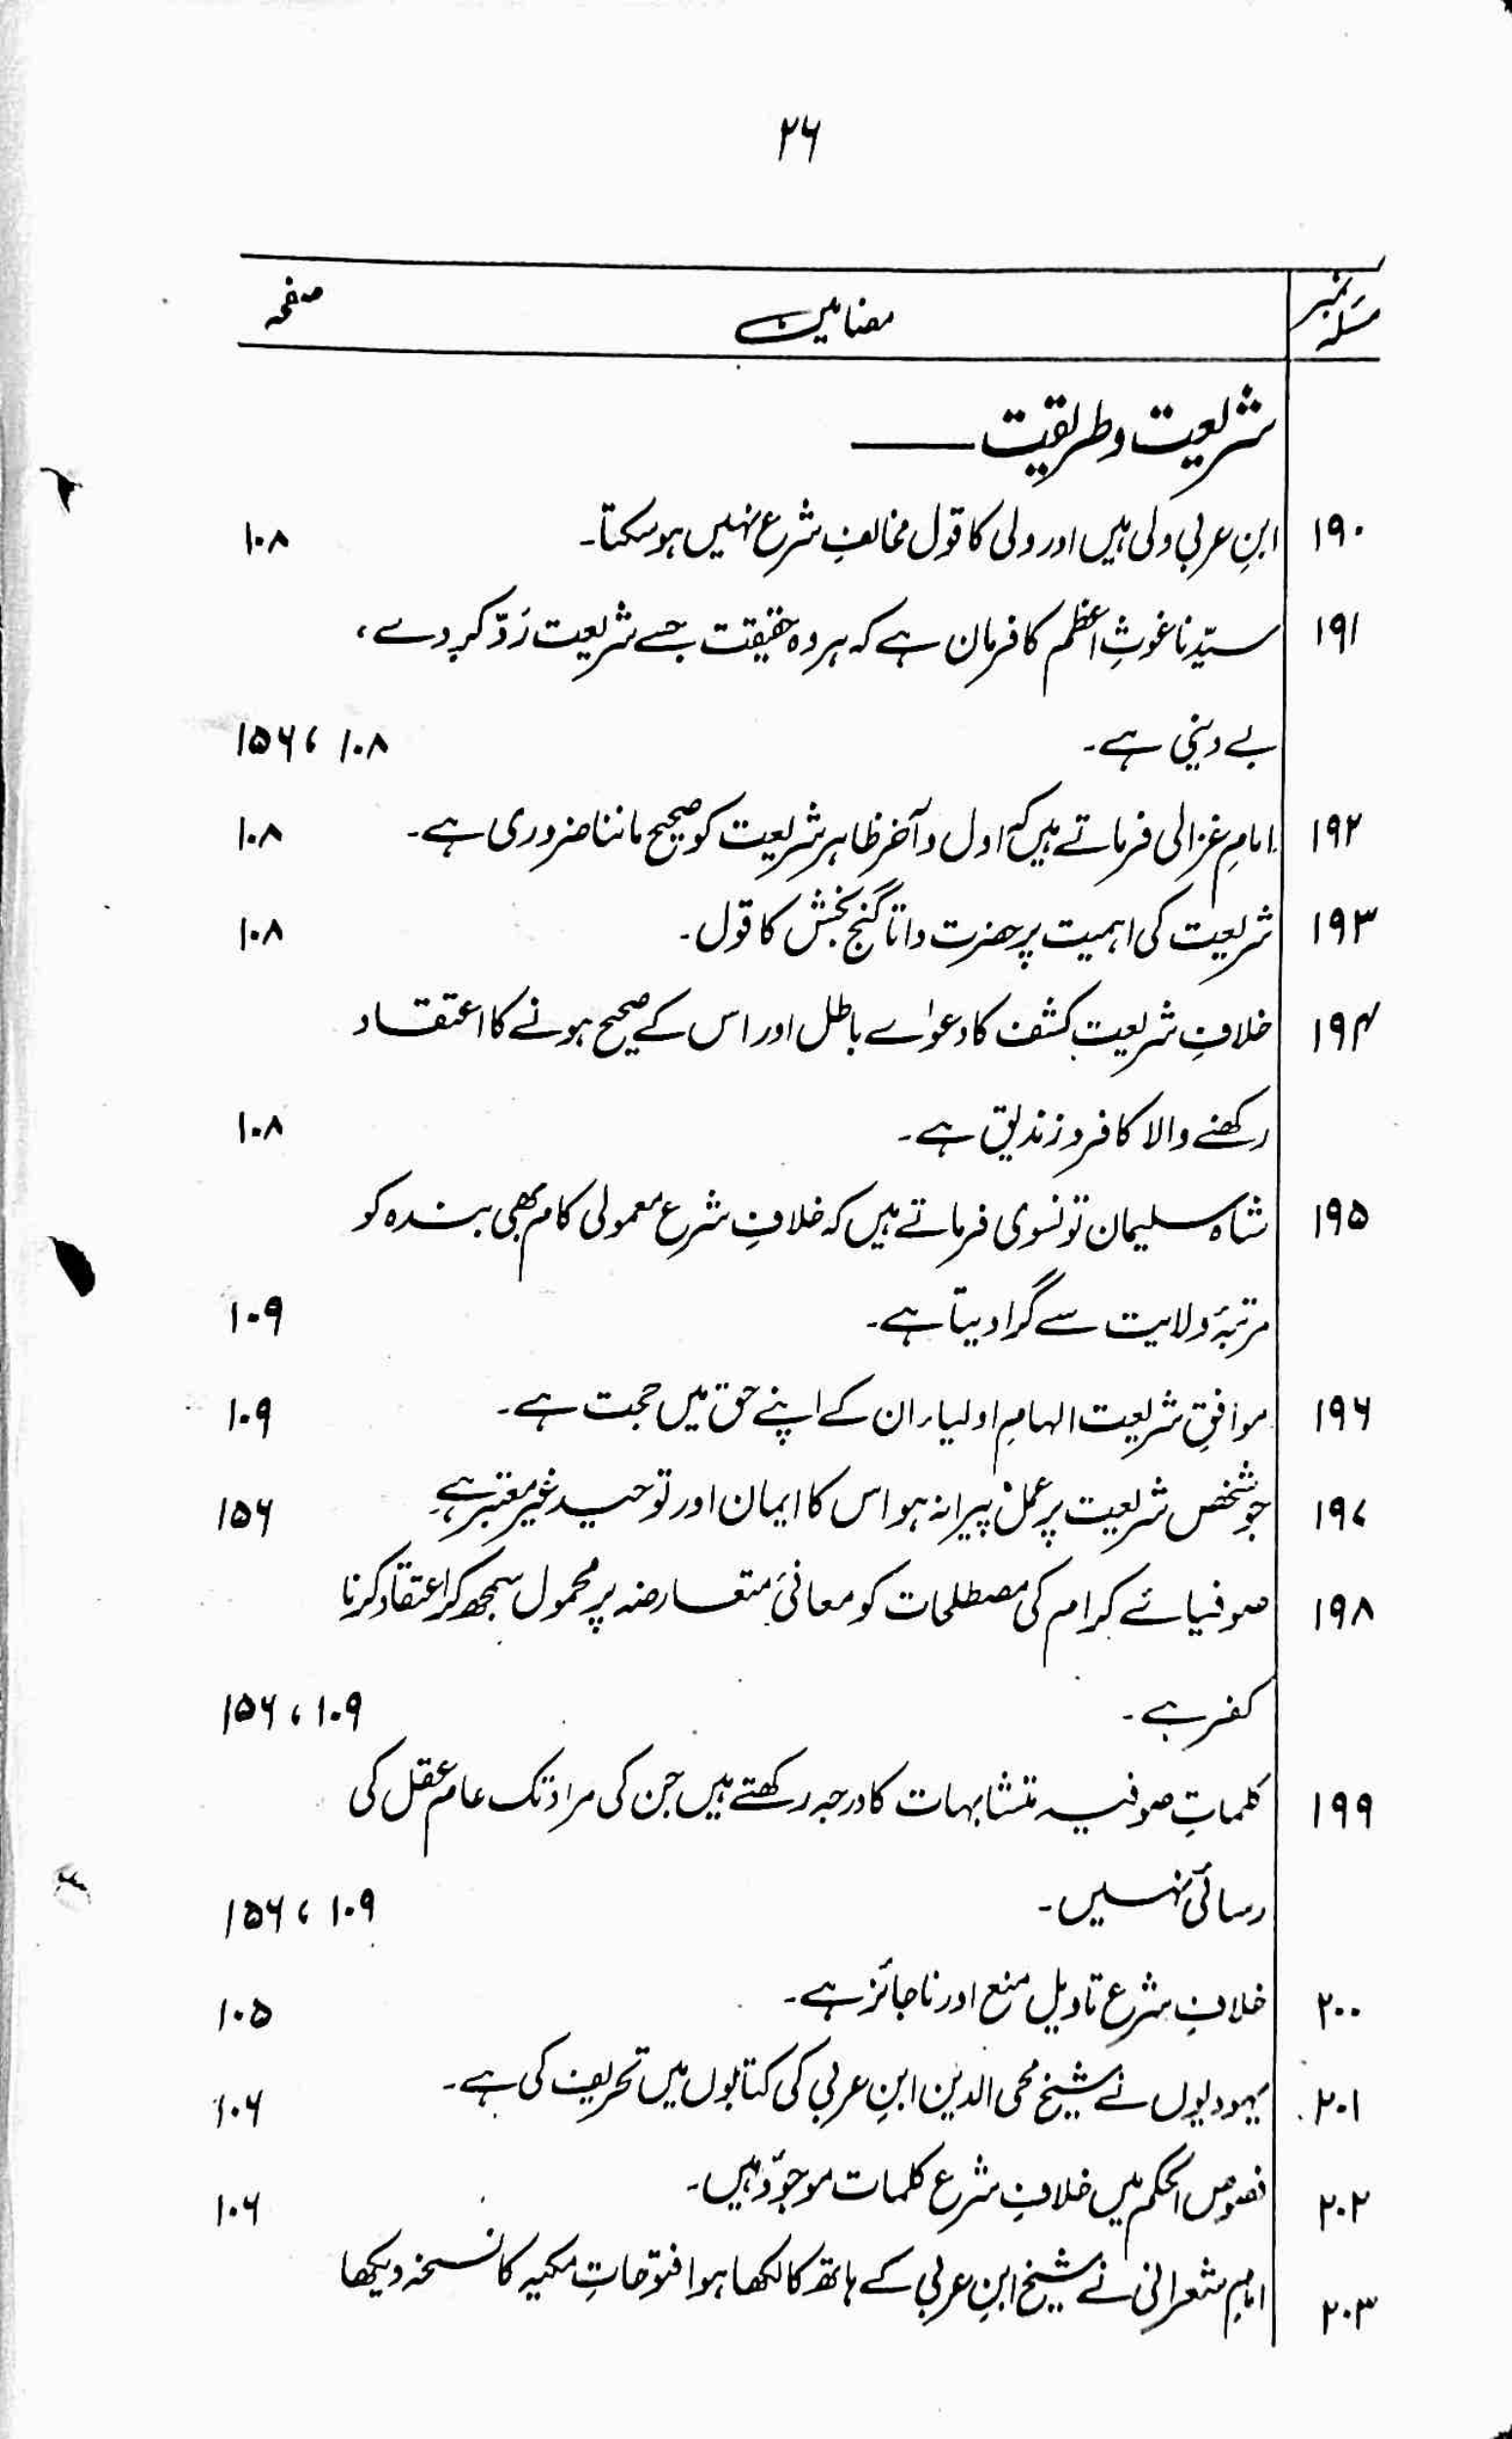 ۲۶
مسئلہ نمبر مضامین صفحہ
شریعت وطریقت
۱۹۰ ابنِ عربی ولی ہیں اور ولی کا قول مخالفِ شرع نہیں ہوسکتا۔ ۱۰۸
۱۹۱ سیّدنا غوثِ اعظم کا فرمان ہے کہ ہر وہ حقیقت جسے شریعت رَدّ کر دے،
بے دینی ہے۔ ۱۰۸، ۱۵۶
۱۹۲ امامِ غزالی فرماتے ہیں کہ اول و آخر ظاہر شریعت کو صحیح ماننا ضروری ہے۔ ۱۰۸
۱۹۳ شریعت کی اہمیت پر حضرت داتا گنج بخش کا قول۔ ۱۰۸
۱۹۴ خلافِ شریعت کشف کا دعوٰے باطل اور اس کے صحیح ہونے کا اعتقاد
رکھنے والا کافر و زندیق ہے۔ ۱۰۸
۱۹۵ شاہ سلیمان تونسوی فرماتے ہیں کہ خلافِ شرع معمولی کام بھی بندہ کو
مرتبۂ ولایت سے گرا دیتا ہے۔ ۱۰۹
۱۹۶ موافقِ شریعت الہامِ اولیاء ان کے اپنے حق میں حجت ہے۔ ۱۰۹
۱۹۷ جو شخص شریعت پر عمل پیرا نہ ہو اس کا ایمان اور توحید غیر معتبر ہے۔ ۱۵۶
۱۹۸ صوفیائے کرام کی مصطلحات کو معانیٔ متعارضہ پر محمول سمجھ کر اعتقاد کرنا
کفر ہے۔ ۱۰۹، ۱۵۶
۱۹۹ کلماتِ صوفیہ متشابہات کا درجہ رکھتے ہیں جن کی مراد تک عام عقل کی
رسائی نہیں۔ ۱۰۹، ۱۵۶
۲۰۰ خلافِ شرع تاویل منع اور ناجائز ہے۔ ۱۰۵
۲۰۱ یہودیوں نے شیخ محی الدین ابنِ عربی کی کتابوں میں تحریف کی ہے۔ ۱۰۶
۲۰۲ فصوص الحکم میں خلافِ شرع کلمات موجود ہیں۔ ۱۰۶
۲۰۳ امام شعرانی نے شیخ ابنِ عربی کے ہاتھ کا لکھا ہوا فتوحاتِ مکیہ کا نسخہ دیکھا